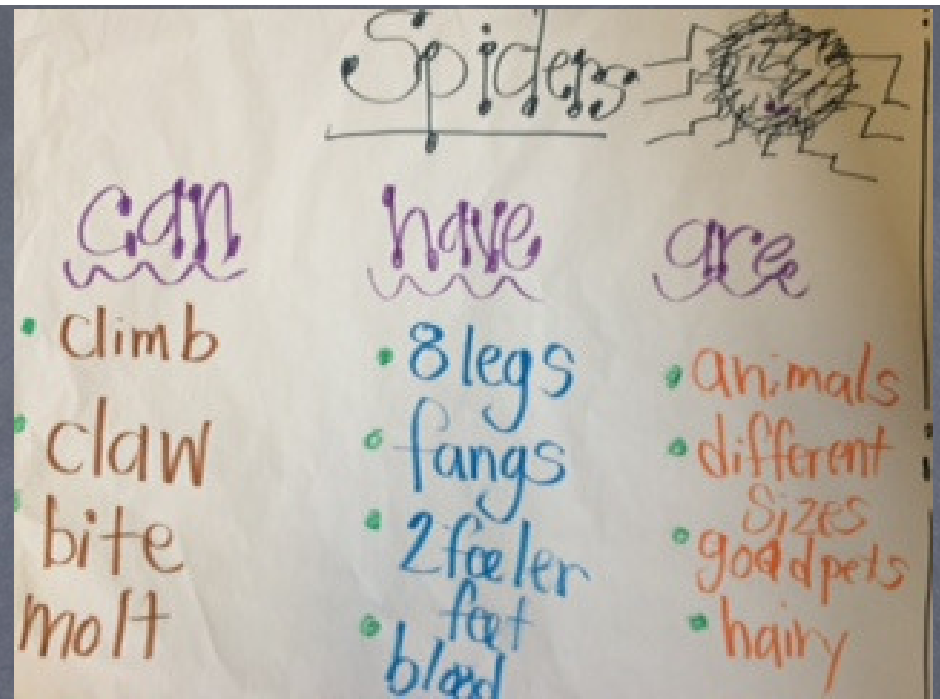 Spiders
can
have
are
• climb
• claw
• bite
molt
• 8 legs
• fangs
• 2 feeler
feet
• blood
• animals
• different
sizes
• good pets
• hairy